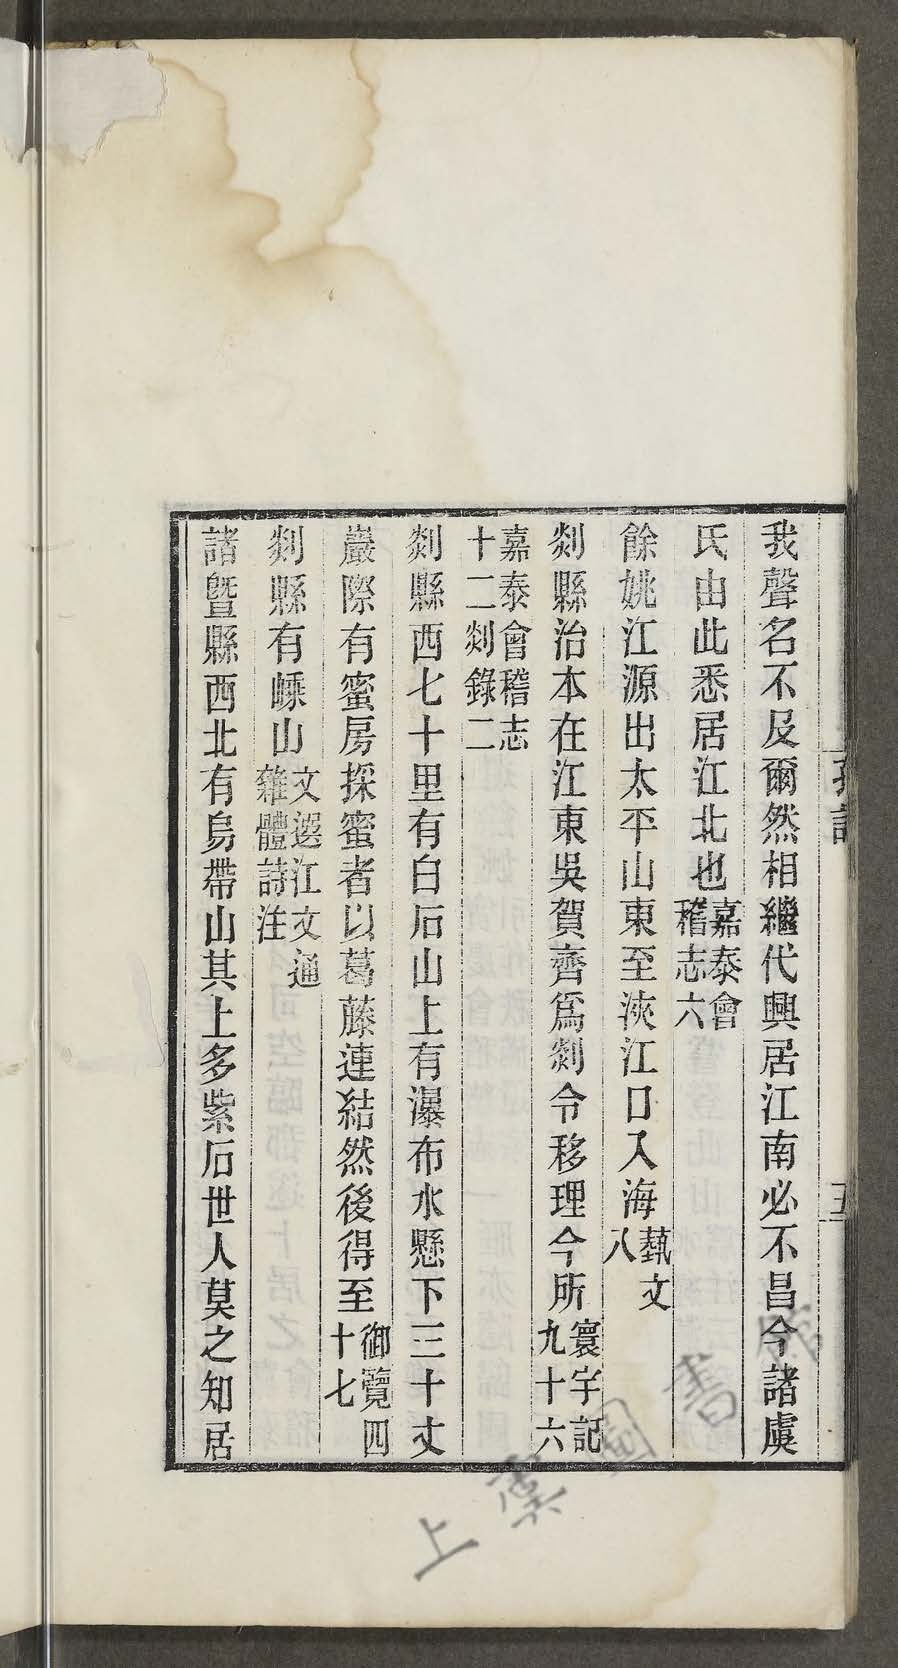 我聲名不及爾然相繼代興居江南必不昌今諸虞
氏由此悉居江北也嘉泰會稽志六
餘姚江源出太平山東至浹江口入海藝文八
剡縣治本在江東吳賀齊爲剡令移理今所寰宇記九十六
嘉泰會稽志十二剡錄二
剡縣西七十里有白石山上有瀑布水懸下三十丈
巖際有蜜房採蜜者以葛藤連結然後得至御覽四十七
剡縣有嵊山文選江文通雜體詩注
諸暨縣西北有烏帶山其上多紫石世人莫之知居
五
上虞圖書館